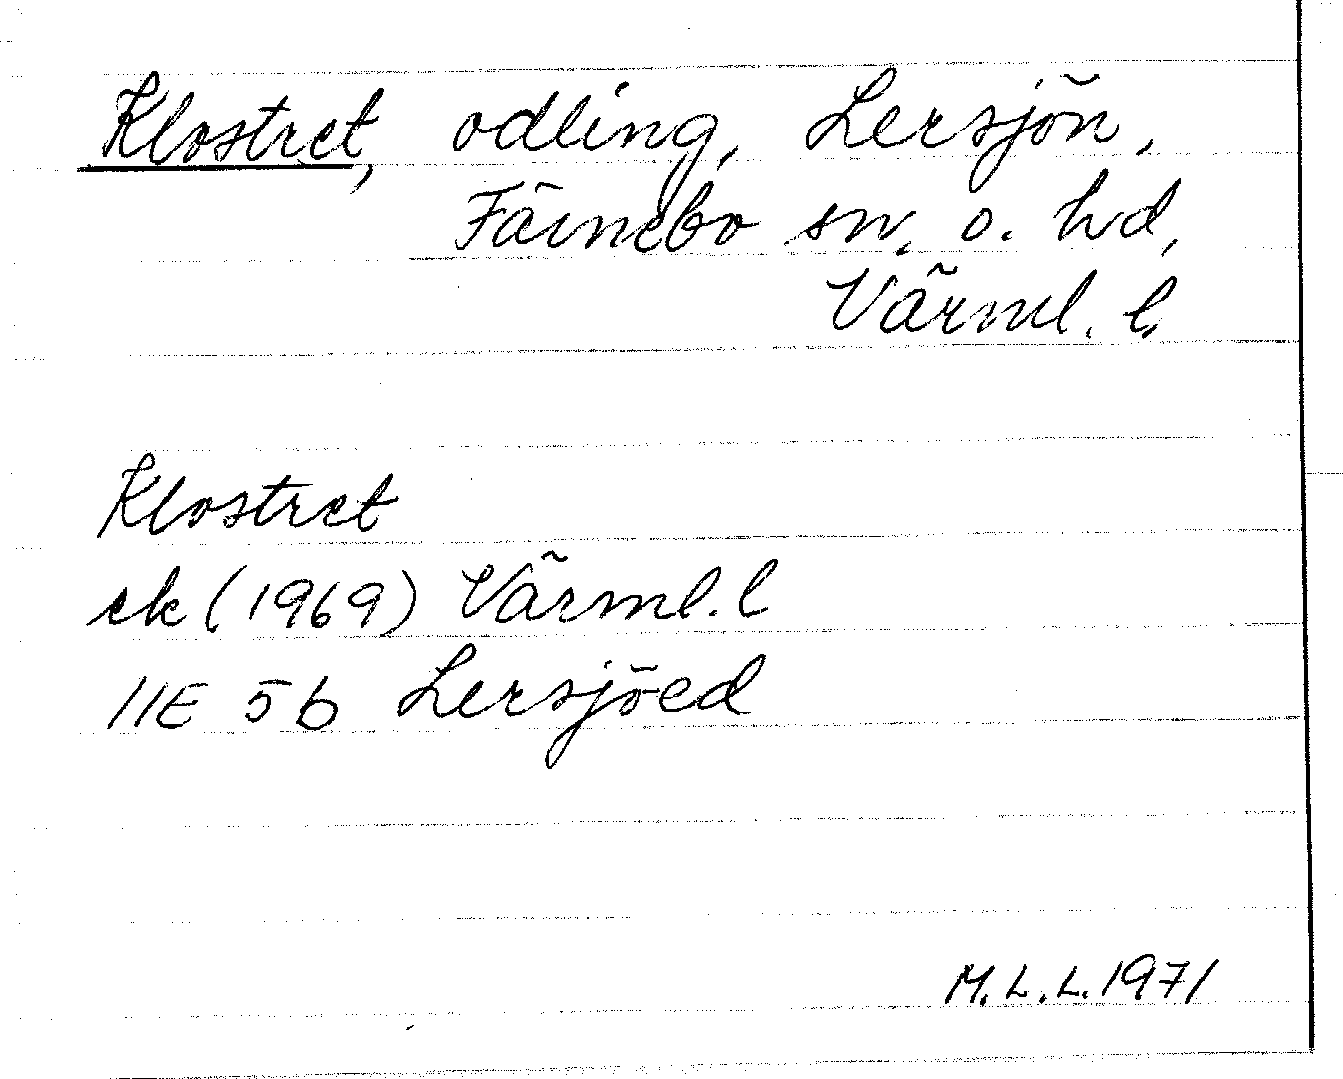 Klostret, odling, Lersjön,
Färnebo sn, o. hd,
Värml. l.
Klostret
ek (1969) Värml. l
11E 5b Lersjöed
M.L.L. 1971